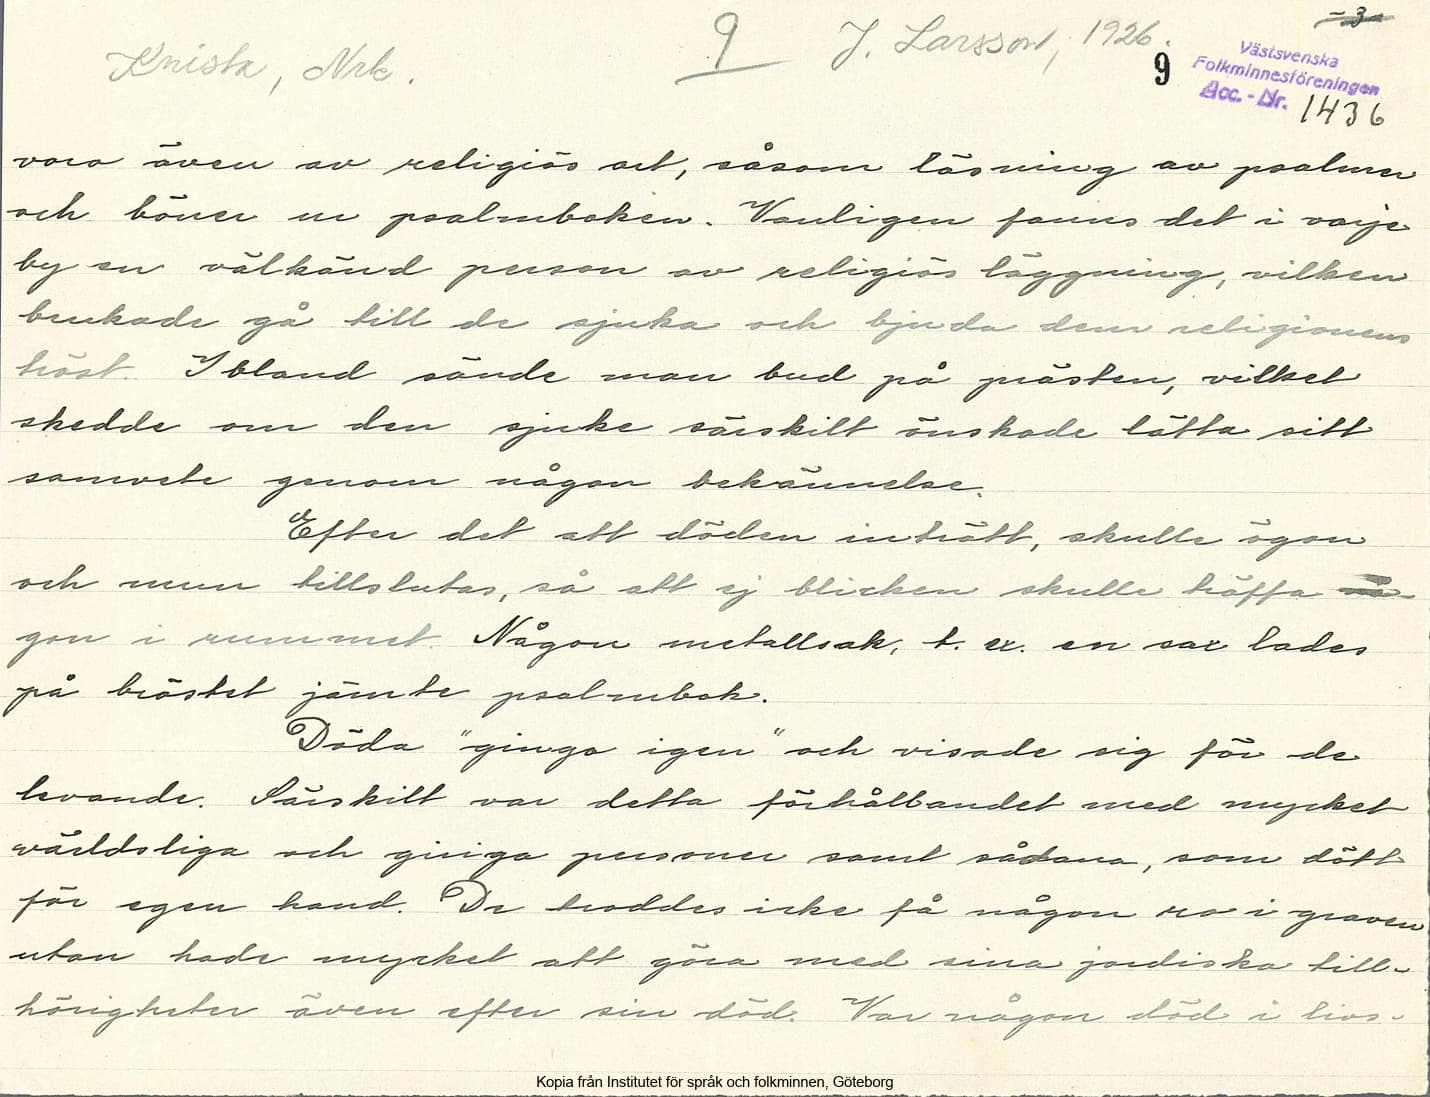 -3-
Knista, Nrk.
9
J. Larsson, 1926.
9
Västsvenska
Folkminnesföreningen
Acc. - Nr. 1436
vara även av religiös art, såsom läsning av psalmer
och böner ur psalmboken. Vanligen fanns det i varje
by en välkänd person av religiös läggning, vilken
brukade gå till de sjuka och bjuda dem religionens
tröst. Ibland sände man bud på prästen, vilket
skedde om den sjuke särskilt önskade lätta sitt
samvete genom någon bekännelse.
Efter det att döden inträtt, skulle ögon
och mun tillslutas, så att ej blicken skulle träffa nå-
gon i rummet. Någon metallsak, t. ex. en sax lades
på bröstet jämte psalmbok.
Döda "gingo igen" och visade sig för de
levande. Särskilt var detta förhållandet med mycket
världsliga och giriga personer samt sådana, som dött
för egen hand. De troddes icke få någon ro i graven
utan hade mycket att göra med sina jordiska till-
hörigheter även efter sin död. Var någon död i livs-
Kopia från Institutet för språk och folkminnen, Göteborg